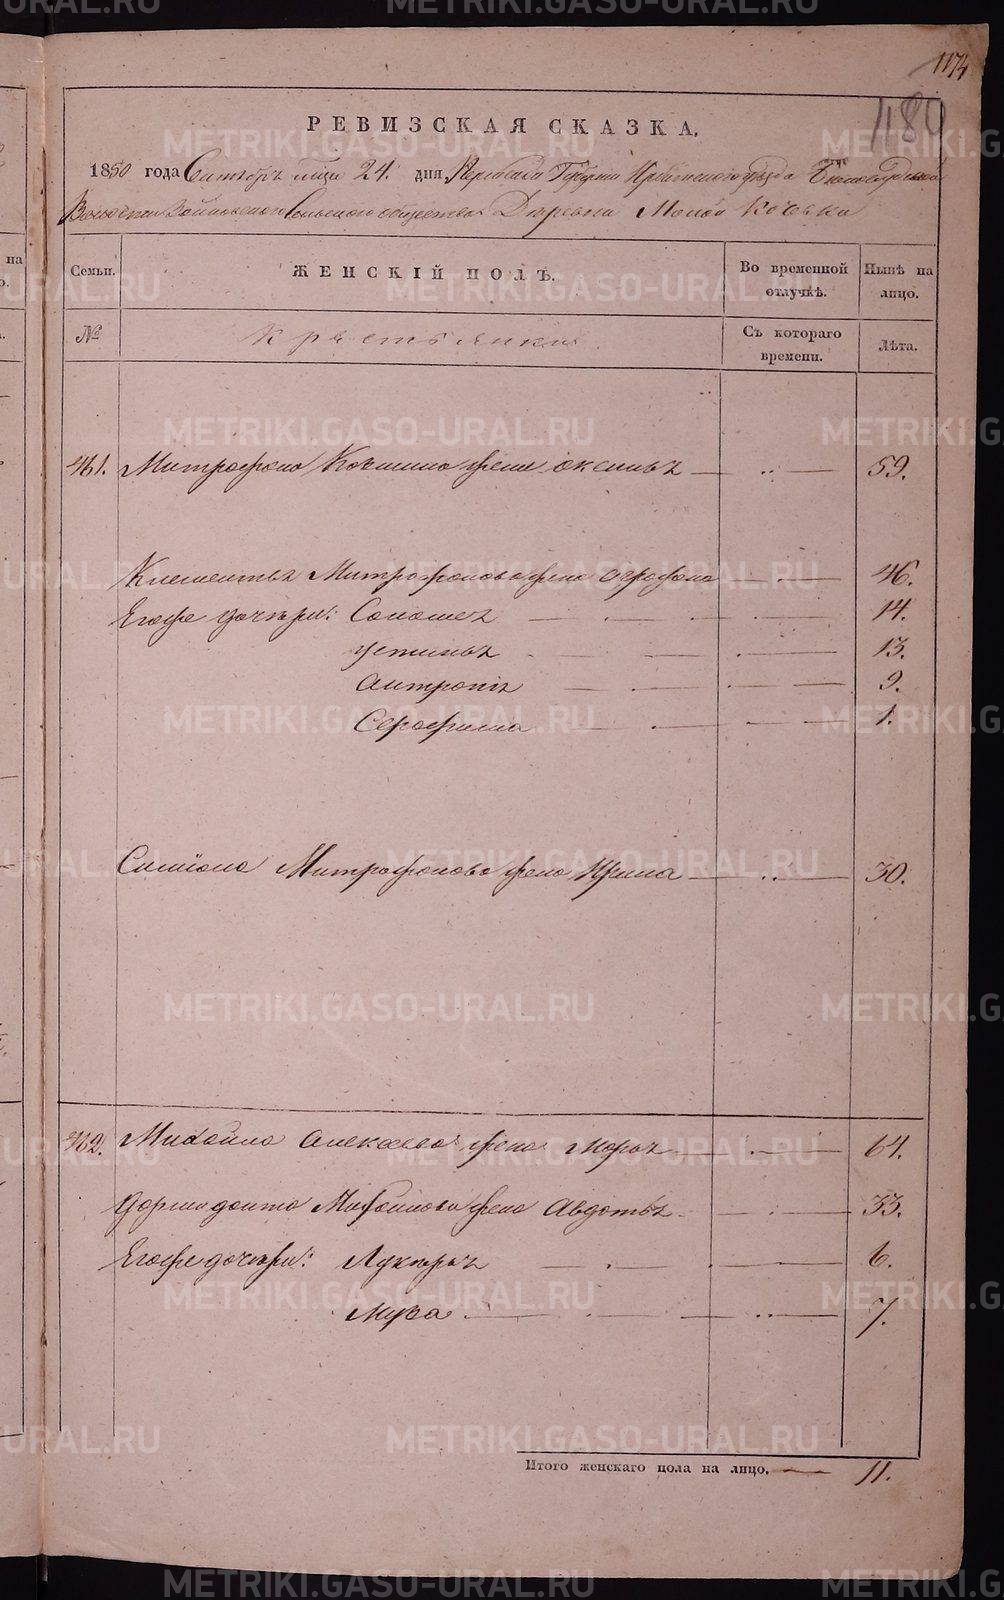 1174
480
РЕВИЗСКАЯ СКАЗКА,
1850 года Сентября м̃ца 24. дня, Пермской Губернии Ирбитского уезда Белослудской
Волости Зайковского Сельского общества Деревни Молой Кочевки
Семьи. ЖЕНСКІЙ ПОЛЪ. Во временной отлучкѣ. Нынѣ на лицо.
№ Крестьянки Съ котораго времени. Лѣта.
461. Митрофона жена Оксинья 59.
Клементья Митрофонова жена Огрофена 46.
Егоже дочери: Соломея 14.
Устинья 13.
Антропia 9.
Серофима 1.
Симiона Митрофонова жена Ирина 30.
462. Михайла Олексеева жена Марья 64.
Дормидонта Михайлова жена Авдотья 33.
Егоже дочери: Лукерья 6.
7.
Итого женскаго пола на лицо. 11.
METRIKI.GASO-URAL.RU